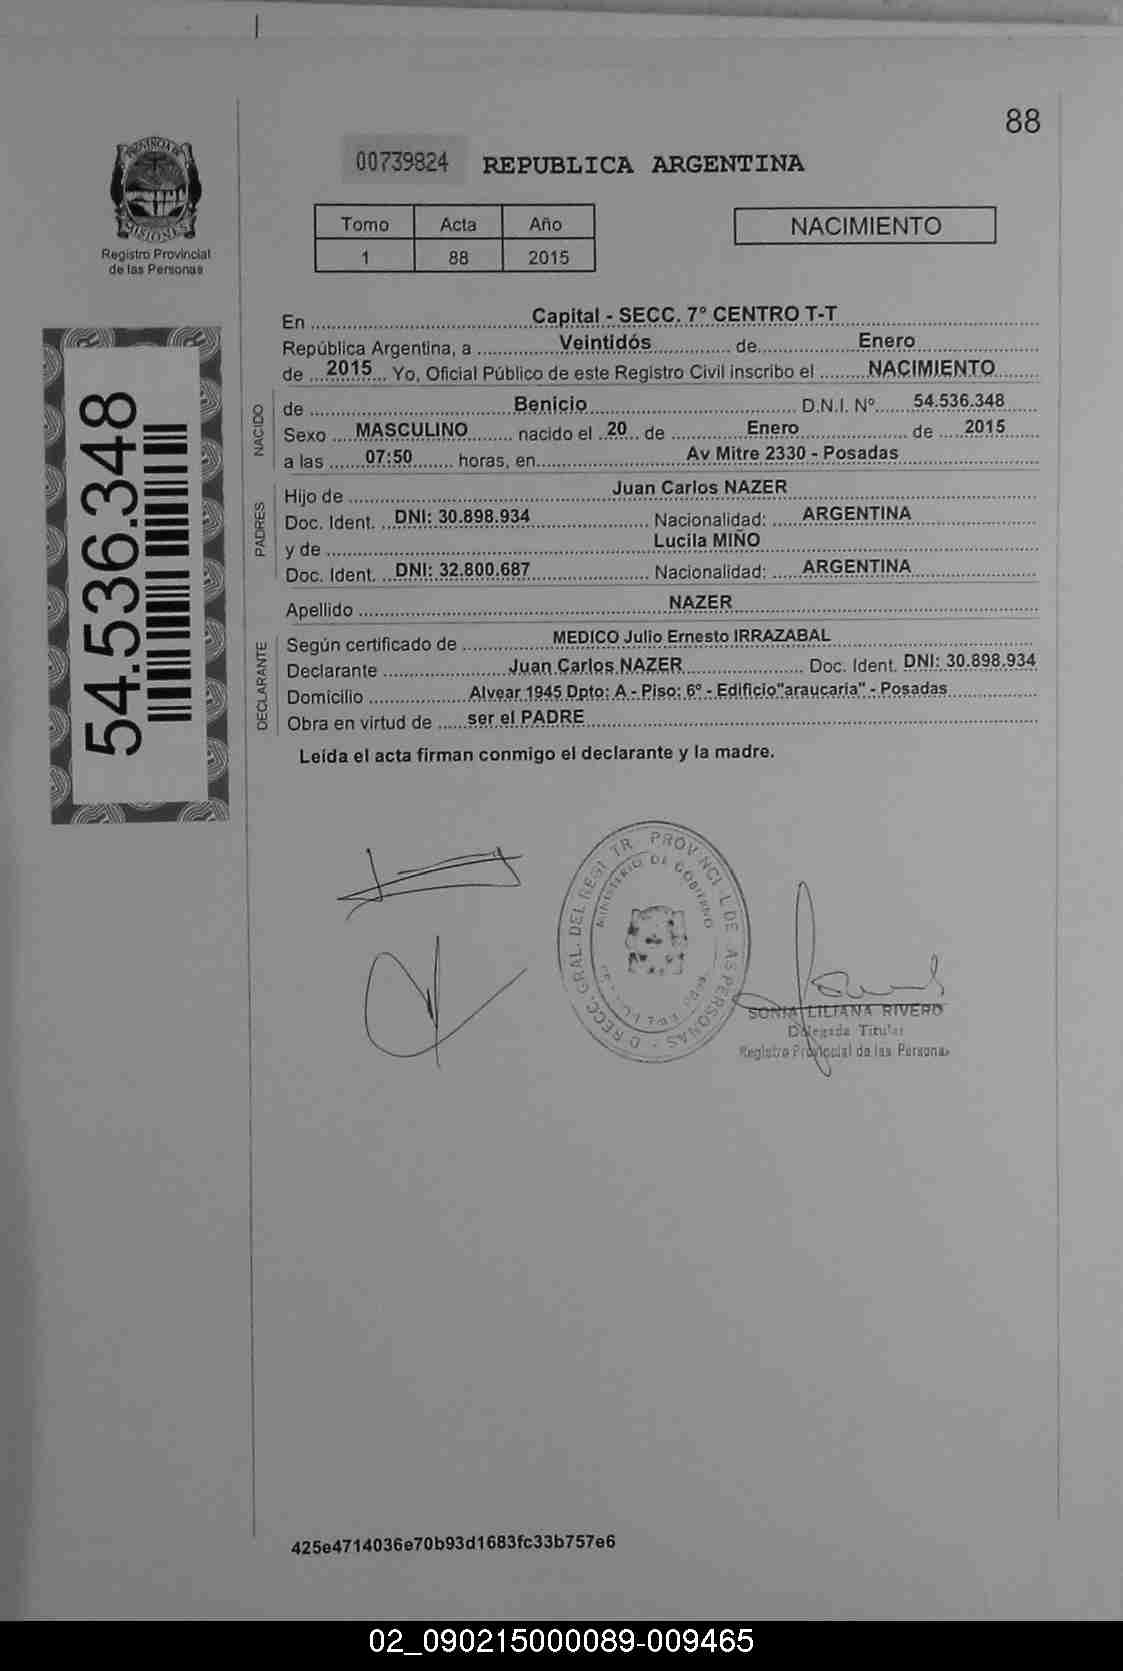 88
00739824 REPUBLICA ARGENTINA
Registro Provincial
de las Personas
Tomo Acta Año
1 88 2015
NACIMIENTO
54.536.348
En Capital - SECC. 7° CENTRO T-T
República Argentina, a Veintidós de Enero
de 2015 Yo, Oficial Público de este Registro Civil inscribo el NACIMIENTO
NACIDO
de Benicio D.N.I. Nº 54.536.348
Sexo MASCULINO nacido el 20 de Enero de 2015
a las 07:50 horas, en Av Mitre 2330 - Posadas
PADRES
Hijo de Juan Carlos NAZER
Doc. Ident. DNI: 30.898.934 Nacionalidad: ARGENTINA
y de Lucila MIÑO
Doc. Ident. DNI: 32.800.687 Nacionalidad: ARGENTINA
Apellido NAZER
DECLARANTE
Según certificado de MEDICO Julio Ernesto IRRAZABAL
Declarante Juan Carlos NAZER Doc. Ident. DNI: 30.898.934
Domicilio Alvear 1945 Dpto: A - Piso: 6º - Edificio"araucaria" - Posadas
Obra en virtud de ser el PADRE
Leída el acta firman conmigo el declarante y la madre.
MINISTERIO DE GOBIERNO
SONIA LILIANA RIVERO
Delegada Titular
Registro Provincial de las Personas
425e4714036e70b93d1683fc33b757e6
02_090215000089-009465